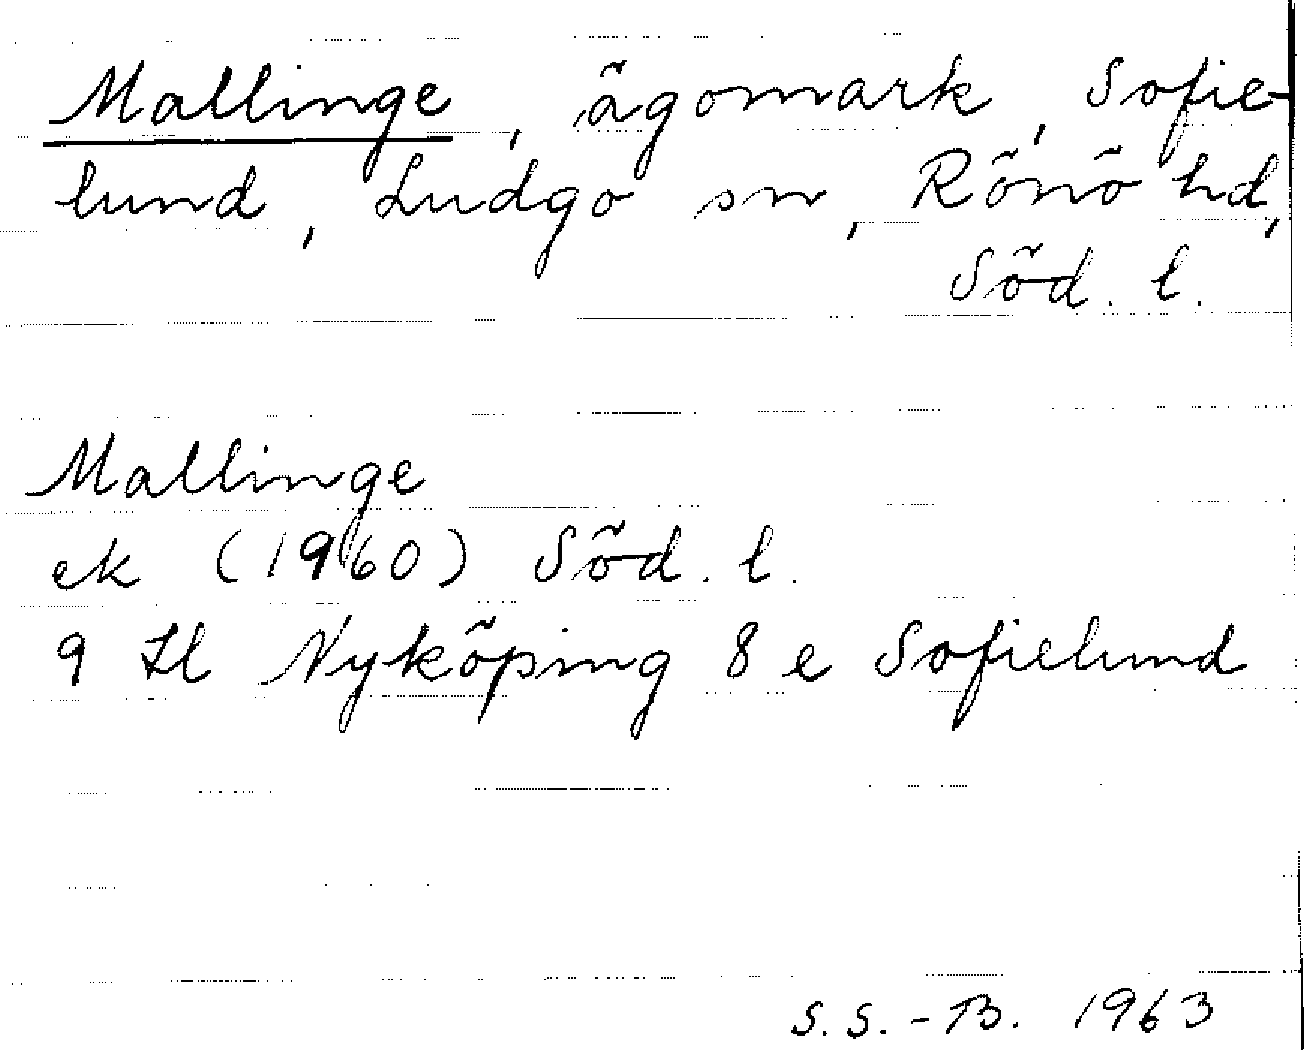 Mallinge, ägomark, Sofie-
lund, Ludgo sn, Rönö hd,
Söd. l.
Mallinge
ek (1960) Söd. l.
9 H Nyköping 8 e Sofielund
S.S.-B. 1963